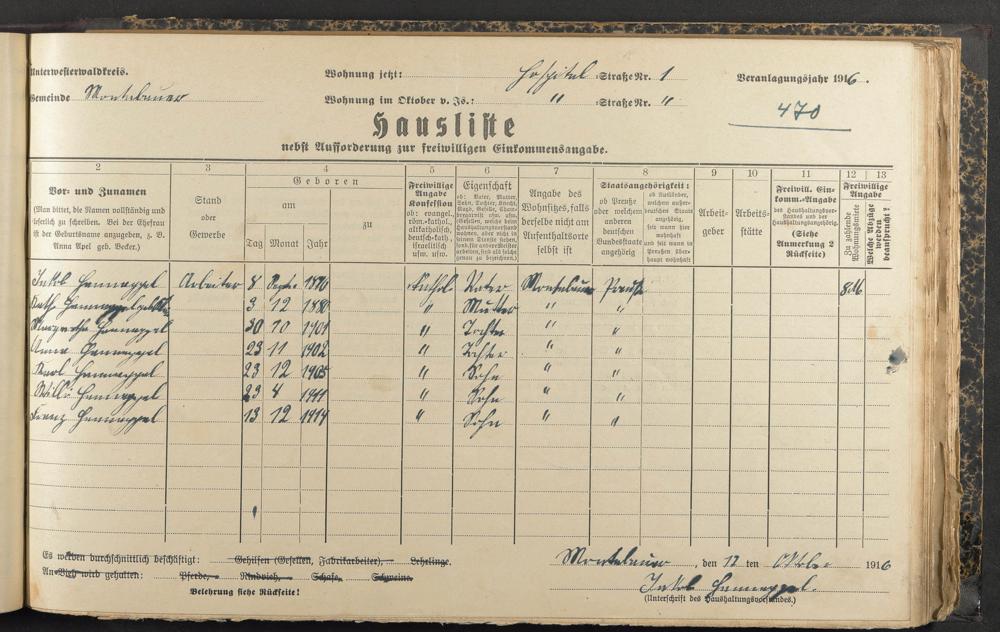 Unterwesterwaldkreis.
Wohnung jetzt: Hospital Straße Nr. 1
Veranlagungsjahr 1916.
Gemeinde Montabaur
Wohnung im Oktober v. Js.: " Straße Nr. "
470
Hausliste
nebst Aufforderung zur freiwilligen Einkommensangabe.
2 3 4 5 6 7 8 9 10 11 12 13
Vor- und Zunamen
(Man bittet, die Namen vollständig und leserlich zu schreiben. Bei der Ehefrau ist der Geburtsname anzugeben, z. B. Anna Apel geb. Becker.)
Stand oder Gewerbe
Geboren
am
zu
Tag Monat Jahr
Freiwillige Angabe
Konfession
ob: evangel., röm.-kathol., altkatholisch, deutsch-kath., israelitisch usw. usw.
Eigenschaft
ob: Vater, Mutter, Sohn, Tochter, Knecht, Magd, Geselle,
Angabe des Wohnsitzes, falls derselbe nicht am Aufenthaltsorte selbst ist
Staatsangehörigkeit:
ob Preuße oder welchem anderen deutschen Bundesstaate angehörig
ob Ausländer, welchem außerdeutschen Staate angehörig, seit wann hier wohnhaft und seit wann in Preußen überhaupt wohnhaft
Arbeitgeber
Arbeitsstätte
Freiwill. Einkomm.-Angabe
des Haushaltungsvorstandes und der Haushaltungsangehörig.
(Siehe Anmerkung 2 Rückseite)
Freiwillige Angabe
Zu zahlende Wohnungsmiete
Welche Abzüge werden beansprucht?
Arbeiter 8 Septr. 1876 Kathol. Vater Montabaur Preuße
3 12 1880 " Mutter " "
30 10 1901 " Tochter " "
Anna 23 11 1902 " Tochter " "
Karl 23 12 1905 " Sohn " "
Willi 23 4 1911 " Sohn " "
Franz 13 12 1914 " Sohn " "
Es werden durchschnittlich beschäftigt: Gehilfen (Gesellen, Fabrikarbeiter), Lehrlinge.
An Vieh wird gehalten: Pferde, Rindvieh, Schafe, Schweine.
Belehrung siehe Rückseite!
Montabaur, den 12 ten Oktober 1916
(Unterschrift des Haushaltungsvorstandes.)